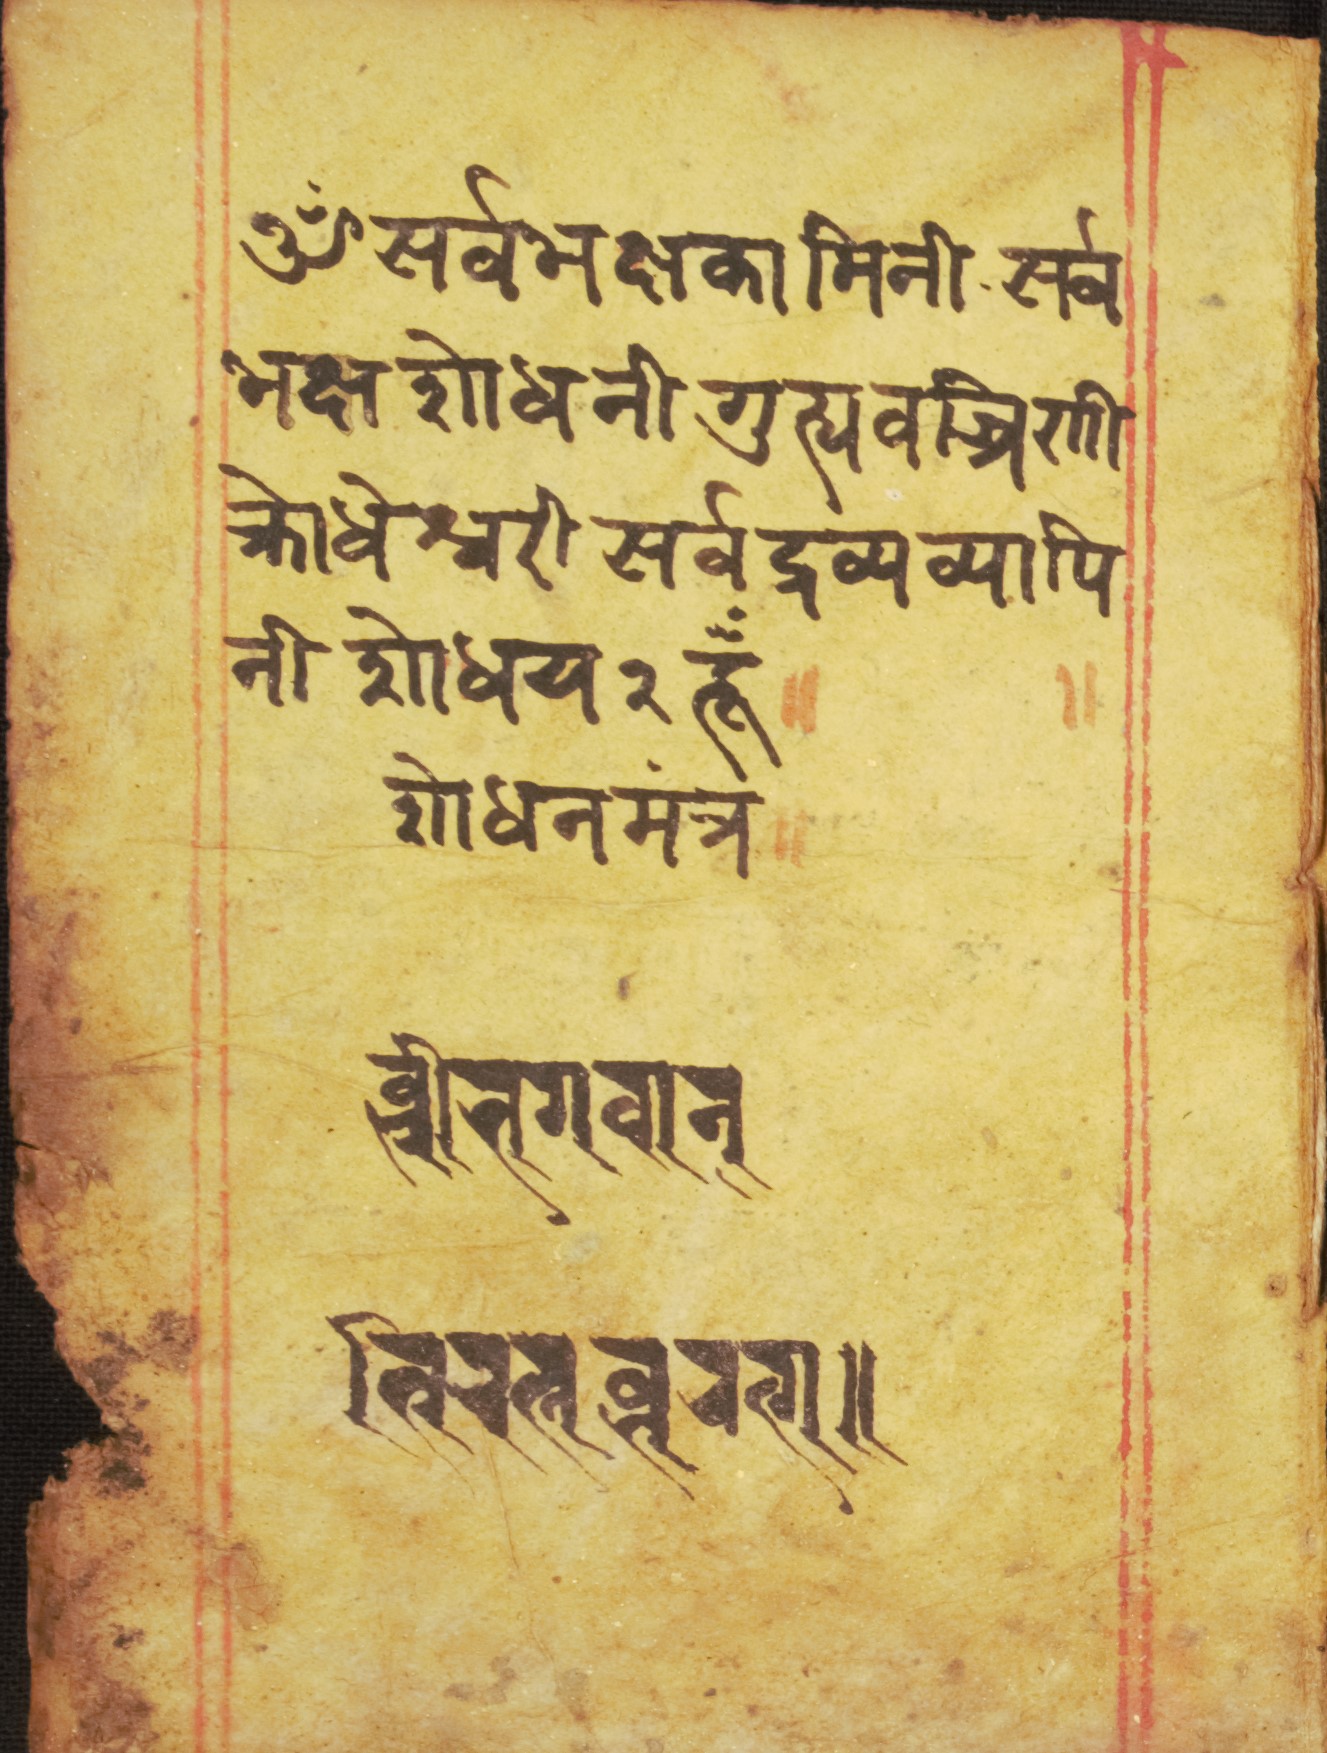 ॐ सर्वभक्षकामिनी सर्व
भक्ष शोधनी गुह्यवज्रिणी
क्रोधेश्वरी सर्वद्रव्यव्यापि
नी शोधय २ हूँ ॥ ॥
शोधनमंत्र ॥